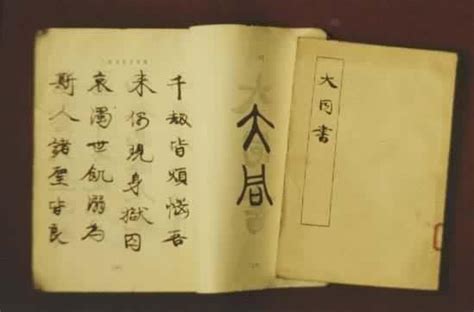 千劫皆煩惱吾
来偶現身獄囚
哀濁世飢溺為
斯人諸聖皆良
大同
大同書